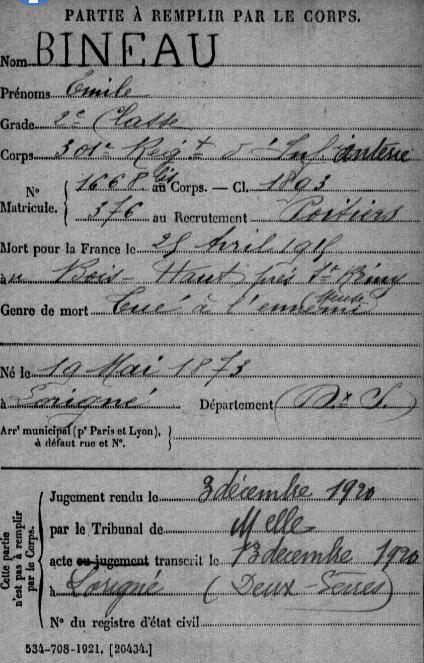 PARTIE À REMPLIR PAR LE CORPS.
Nom BINEAU
Prénoms Emile
Grade 2e Classe
Corps 301e Regt d'Infanterie
N° Matricule. { 1668 bis au Corps. — Cl. 1893
376 au Recrutement Poitiers
Mort pour la France le 25 Avril 1915
à au Bois-Haut près St Rémy
Meuse
Genre de mort Tué à l'ennemi
Né le 19 Mai 1873
à Lorigné Département (Dx S.)
Arrt municipal (pr Paris et Lyon), à défaut rue et N°. }
Cette partie n'est pas à remplir par le Corps. {
Jugement rendu le 3 décembre 1920
par le Tribunal de Melle
acte ou jugement transcrit le 13 decembre 1920
à Lorigné (Deux-Sevres)
N° du registre d'état civil
534-708-1921. [26434.]